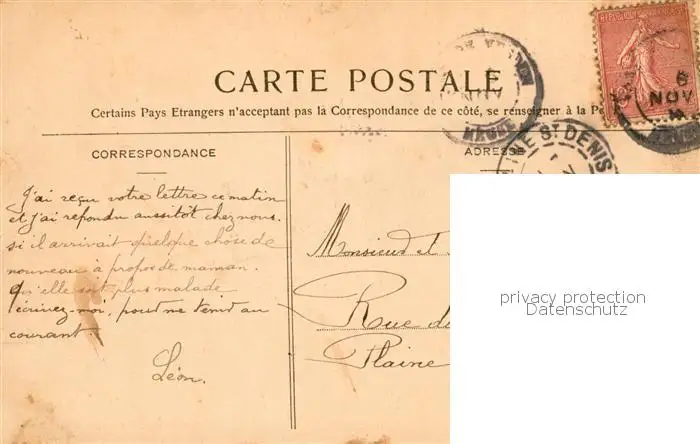 REPUBLIQUE
CARTE POSTALE
6
NOV
Certains Pays Etrangers n'acceptant pas la Correspondance de ce côté, se renseigner à la Po
CORRESPONDANCE
ADRESSE
NE ST DENIS
J'ai reçu votre lettre ce matin
et j'ai repondu aussitôt chez nous.
si il arrivait quelque chose de
nouveau à propos de maman.
qu'elle soit plus malade
écrivez-moi, pour me tenir au
courant
Léon.
Monsieur et
Rue de
Plaine
privacy protection
Datenschutz